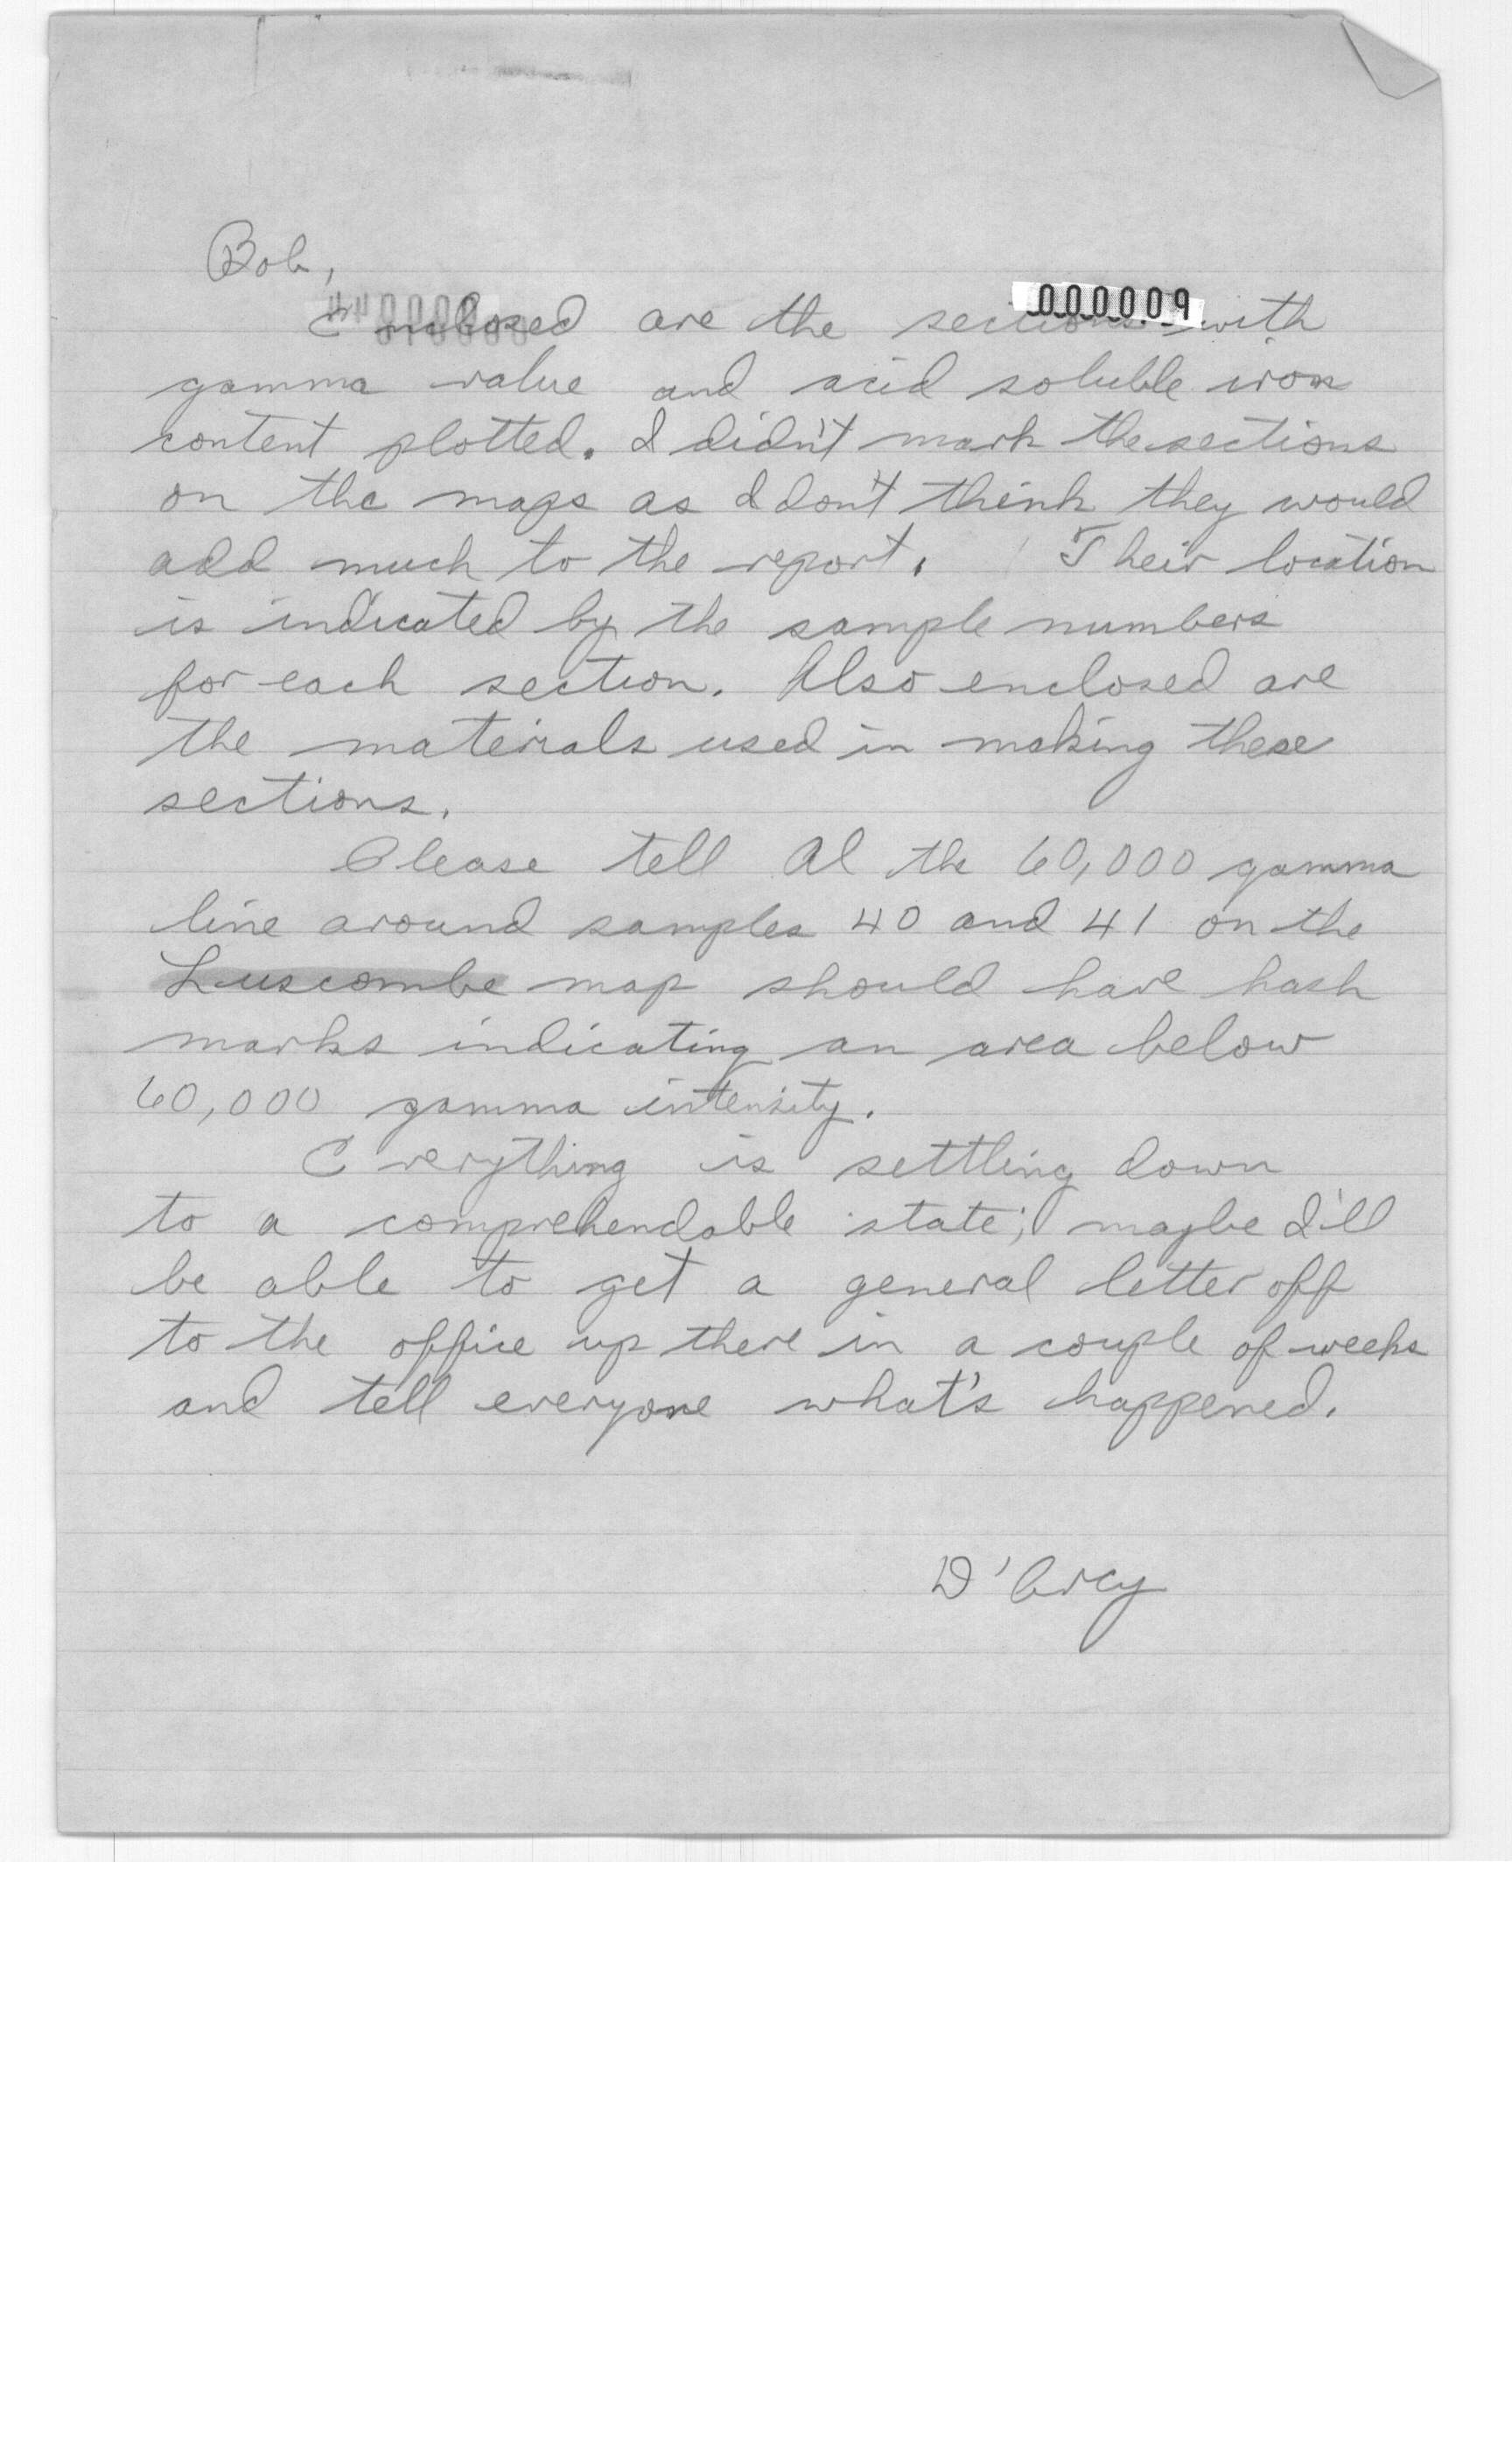 Bob,
000009
Enclosed are the sections with
gamma value and acid soluble iron
content plotted. I didn't mark the sections
on the maps as I don't think they would
add much to the report. Their location
is indicated by the sample numbers
for each section. Also enclosed are
the materials used in making these
sections.
Please tell Al the 60,000 gamma
line around samples 40 and 41 on the
Luscombe map should have hash
marks indicating an area below
60,000 gamma intensity.
Everything is settling down
to a comprehendable state; maybe I'll
be able to get a general letter off
to the office up there in a couple of weeks
and tell everyone what's happened.
D'Arcy